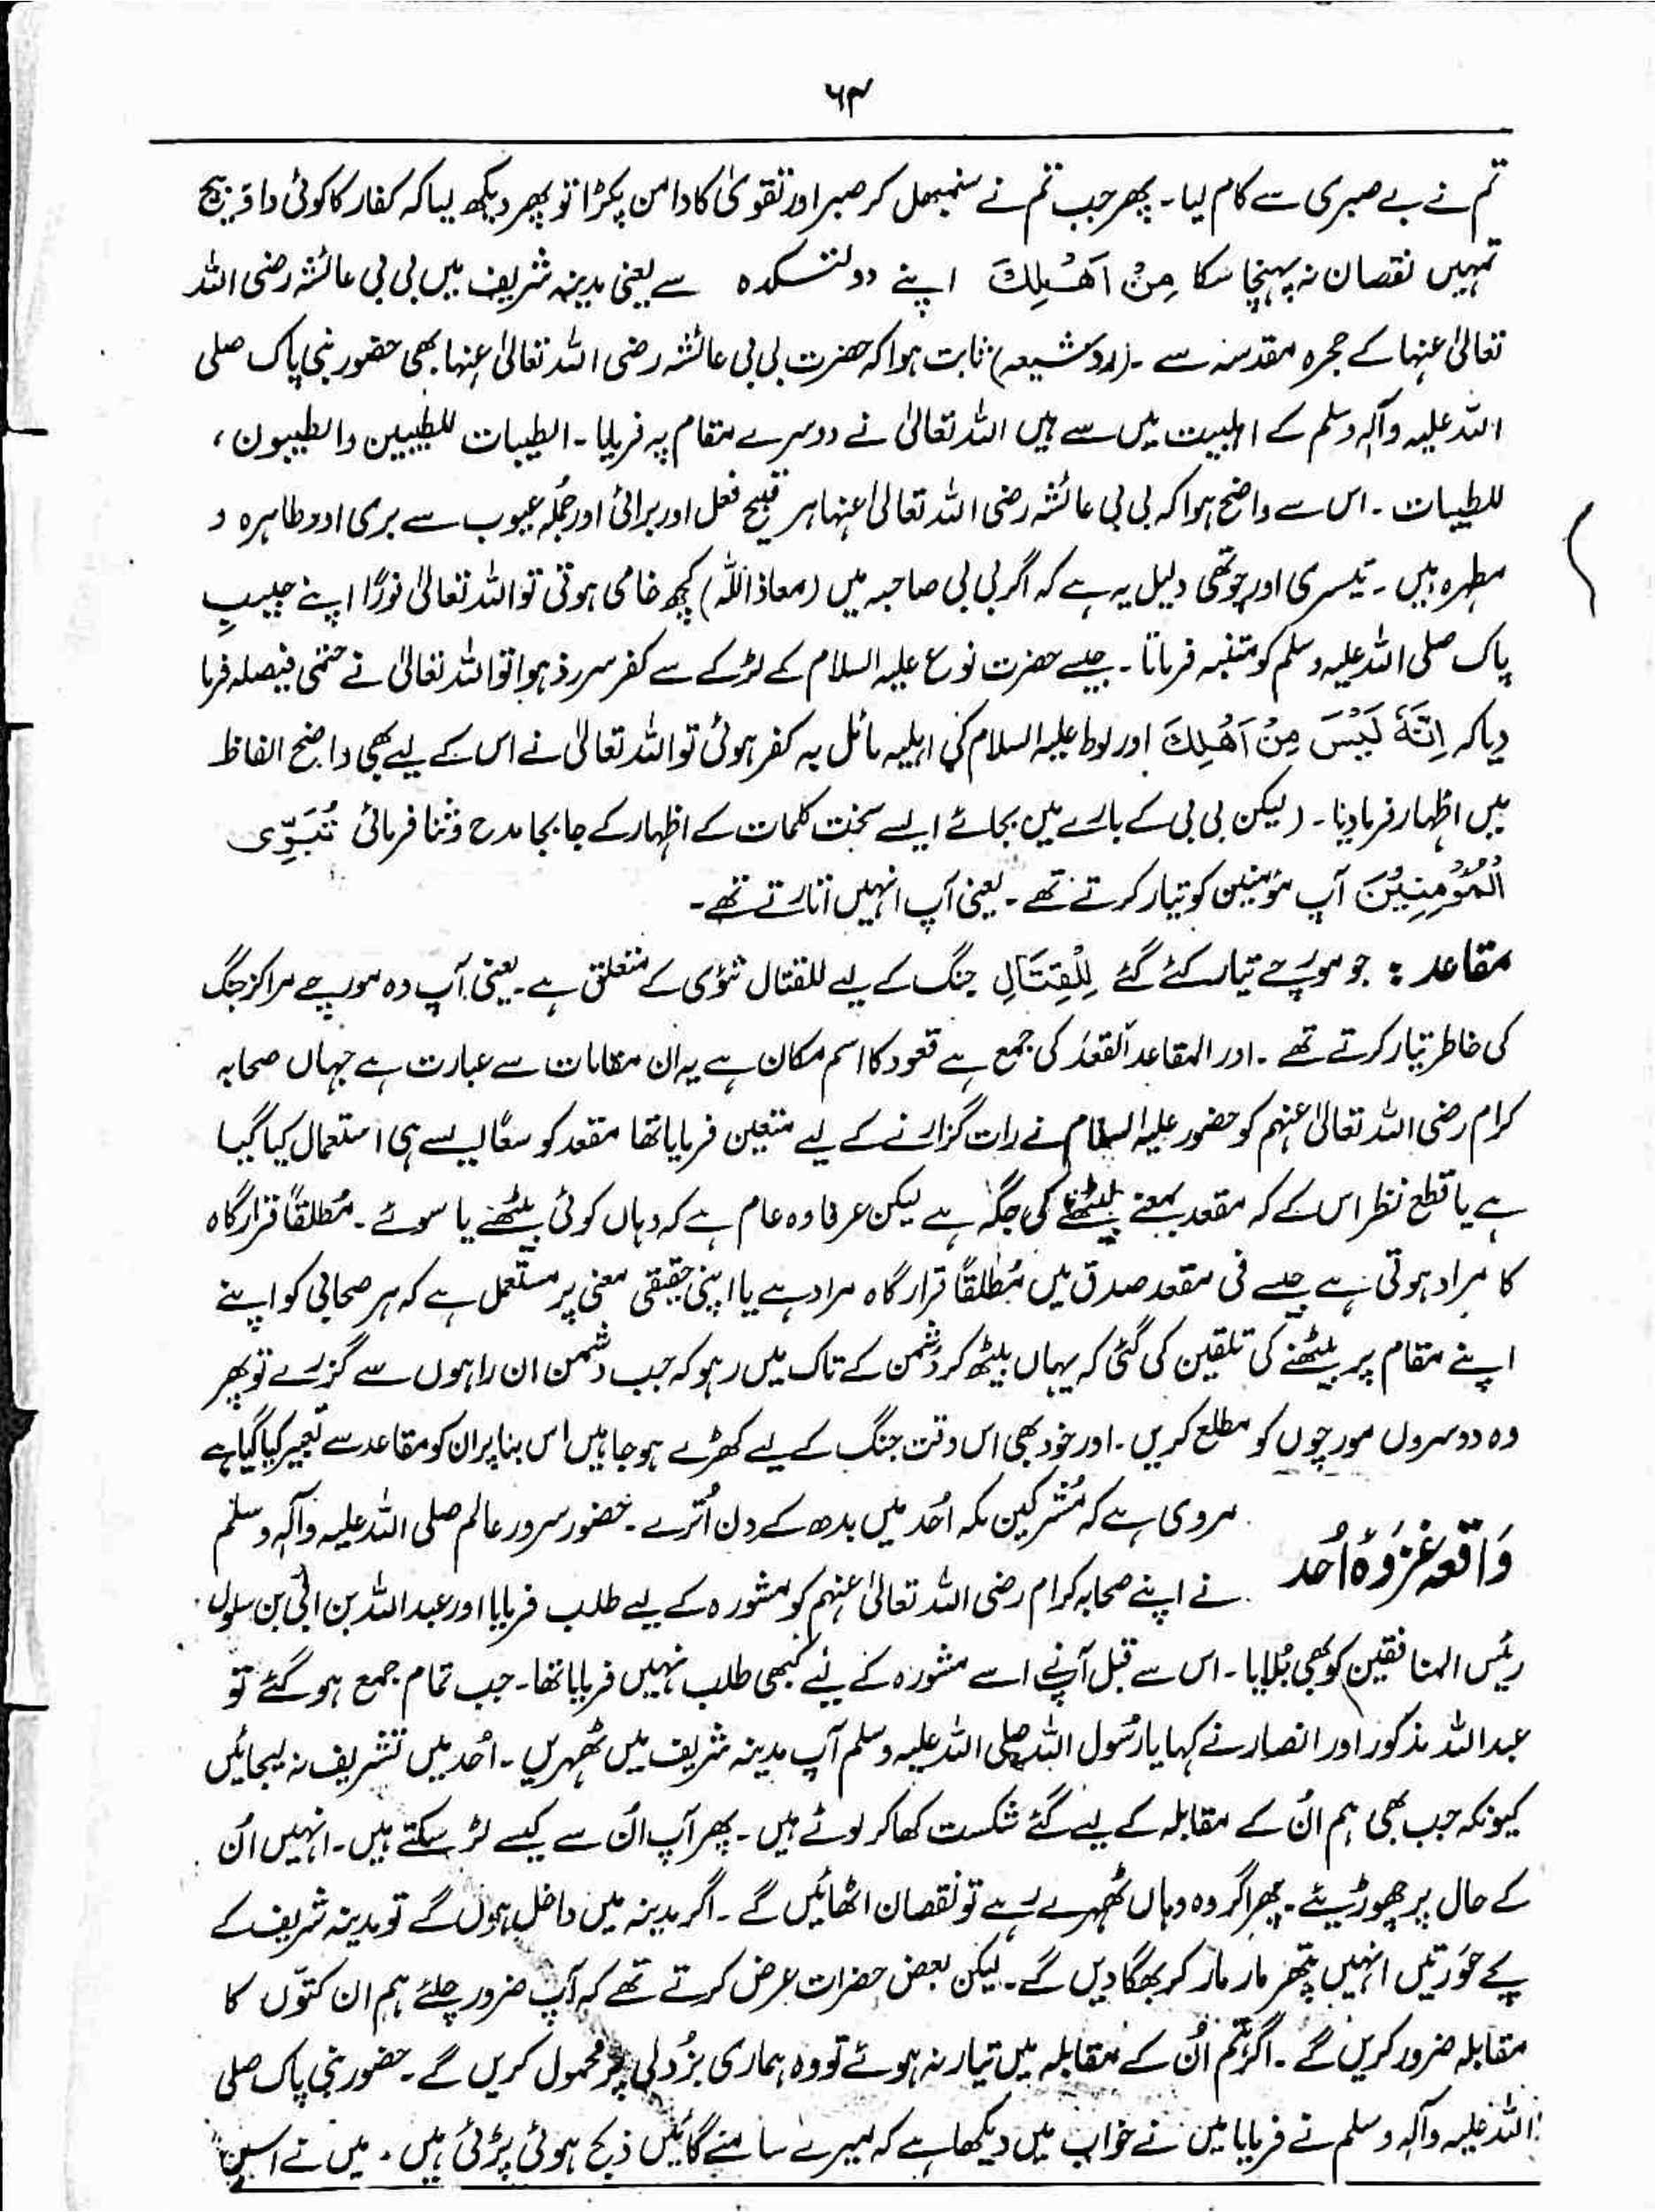 ۶۴
تم نے بے صبری سے کام لیا۔ پھر جب تم نے سنبھل کر صبر اور تقویٰ کا دامن پکڑا تو پھر دیکھ لیا کہ کفار کا کوئی داؤ پیچ
تمہیں نقصان نہ پہنچا سکا مِنْ اَهْلِكَ اپنے دولتکدہ سے یعنی مدینہ شریف میں بی بی عائشہ رضی اللہ
تعالیٰ عنہا کے حجرہ مقدسہ سے ۔ (رد شیعہ) ثابت ہوا کہ حضرت بی بی عائشہ رضی اللہ تعالیٰ عنہا بھی حضور نبی پاک صلی
اللہ علیہ وآلہ وسلم کے اہلبیت میں سے ہیں اللہ تعالیٰ نے دوسرے مقام پہ فرمایا ۔ الطیبات للطیبین والطیبون ،
للطیبات ۔ اس سے واضح ہوا کہ بی بی عائشہ رضی اللہ تعالیٰ عنہا ہر قبیح فعل اور برائی اور جُملہ عیوب سے بری اور طاہرہ و
مطہرہ ہیں ۔ تیسری اور چوتھی دلیل یہ ہے کہ اگر بی بی صاحبہ میں (معاذ اللہ) کچھ خامی ہوتی تو اللہ تعالیٰ فورًا اپنے حبیبِ
پاک صلی اللہ علیہ وسلم کو متنبہ فرماتا ۔ جیسے حضرت نوح علیہ السلام کے لڑکے سے کفر سرزد ہوا تو اللہ تعالیٰ نے حتمی فیصلہ فرما
دیا کہ اِنَّهٗ لَيْسَ مِنْ اَهْلِكَ اور لوط علیہ السلام کی اہلیہ مائل بہ کفر ہوئی تو اللہ تعالیٰ نے اس کے لیے بھی واضح الفاظ
میں اظہار فرما دیا ۔ (لیکن بی بی کے بارے میں بجائے ایسے سخت کلمات کے اظہار کے جابجا مدح و ثنا فرمائی تُبَوِّی
الْمُؤْمِنِيْنَ آپ مؤمنین کو تیار کرتے تھے ۔ یعنی آپ انہیں اتارتے تھے ۔
مقاعد : جو مورچے تیار کئے گئے لِلْقِتَالِ جنگ کے لیے للقتال تبؤی کے متعلق ہے ۔ یعنی آپ وہ مورچے مراکز جنگ
کی خاطر تیار کرتے تھے ۔ اور المقاعد القعدُ کی جمع ہے قعود کا اسم مکان ہے یہ ان مقامات سے عبارت ہے جہاں صحابہ
کرام رضی اللہ تعالیٰ عنہم کو حضور علیہ السلام نے رات گزارنے کے لیے متعین فرمایا تھا مقعد کو ایسے ہی استعمال کیا گیا
ہے یا قطع نظر اس کے کہ مقعد بمعنے بیٹھنے کی جگہ ہے لیکن عرفا وہ عام ہے کہ وہاں کوئی بیٹھنے یا سوئے ۔ مُطلقًا قرار گاہ
کا مراد ہوتی ہے جیسے فی مقعد صدق میں مُطلقًا قرار گاہ مراد ہے یا اپنی حقیقی معنی پر مستعمل ہے کہ ہر صحابی کو اپنے
اپنے مقام پر بیٹھنے کی تلقین کی گئی کہ یہاں بیٹھ کر دُشمن کے تاک میں رہو کہ جب دُشمن ان راہوں سے گزرے تو پھر
وہ دوسروں مورچوں کو مطلع کریں ۔ اور خود بھی اس وقت جنگ کے لیے کھڑے ہو جاہیں اس بنا پر ان کو مقاعد سے تعبیر کیا گیا ہے
وَاقعہ غزوَہٗ اُحد
مروی ہے کہ مُشرکین مکہ اُحد میں بدھ کے دن اُترے ۔ حضور سرور عالم صلی اللہ علیہ وآلہ وسلم
نے اپنے صحابہ کرام رضی اللہ تعالیٰ عنہم کو مشورہ کے لیے طلب فرمایا اور عبد اللہ بن ابی بن سلول
رئیس المنافقین کو بھی بُلایا ۔ اس سے قبل آپنے اسے مشورہ کے لئے کبھی طلب نہیں فرمایا تھا ۔ جب تمام جمع ہو گئے تو
عبد اللہ مذکور اور انصار نے کہا یا رسُول اللہ صلی اللہ علیہ وسلم آپ مدینہ شریف میں ٹھہریں ۔ اُحد میں تشریف نہ لیجائیں
کیونکہ جب بھی ہم اُن کے مقابلہ کے لیے گئے شکست کھا کر لوٹے ہیں ۔ پھر آپ اُن سے کیسے لڑ سکتے ہیں ۔ انہیں اُن
کے حال پر چھوڑیئے ۔ پھر اگر وہ وہاں ٹھہرے رہے تو نقصان اٹھائیں گے ۔ اگر مدینہ میں داخل ہوں گے تو مدینہ شریف کے
بچے عَورتیں انہیں پتھر مار مار کر بھگا دیں گے ۔ لیکن بعض حضرات عرض کرتے تھے کہ آپ ضرور چلئے ہم ان کتّوں کا
مقابلہ ضرور کریں گے ۔ اگر ہم اُن کے مقابلہ میں تیار نہ ہوئے تو وہ ہماری بزُدلی پر محمول کریں گے ۔ حضور نبی پاک صلی
اللہ علیہ وآلہ وسلم نے فرمایا میں نے خواب میں دیکھا ہے کہ میرے سامنے گائیں ذبح ہوئی پڑئی ہیں ۔ میں نے اسمیں